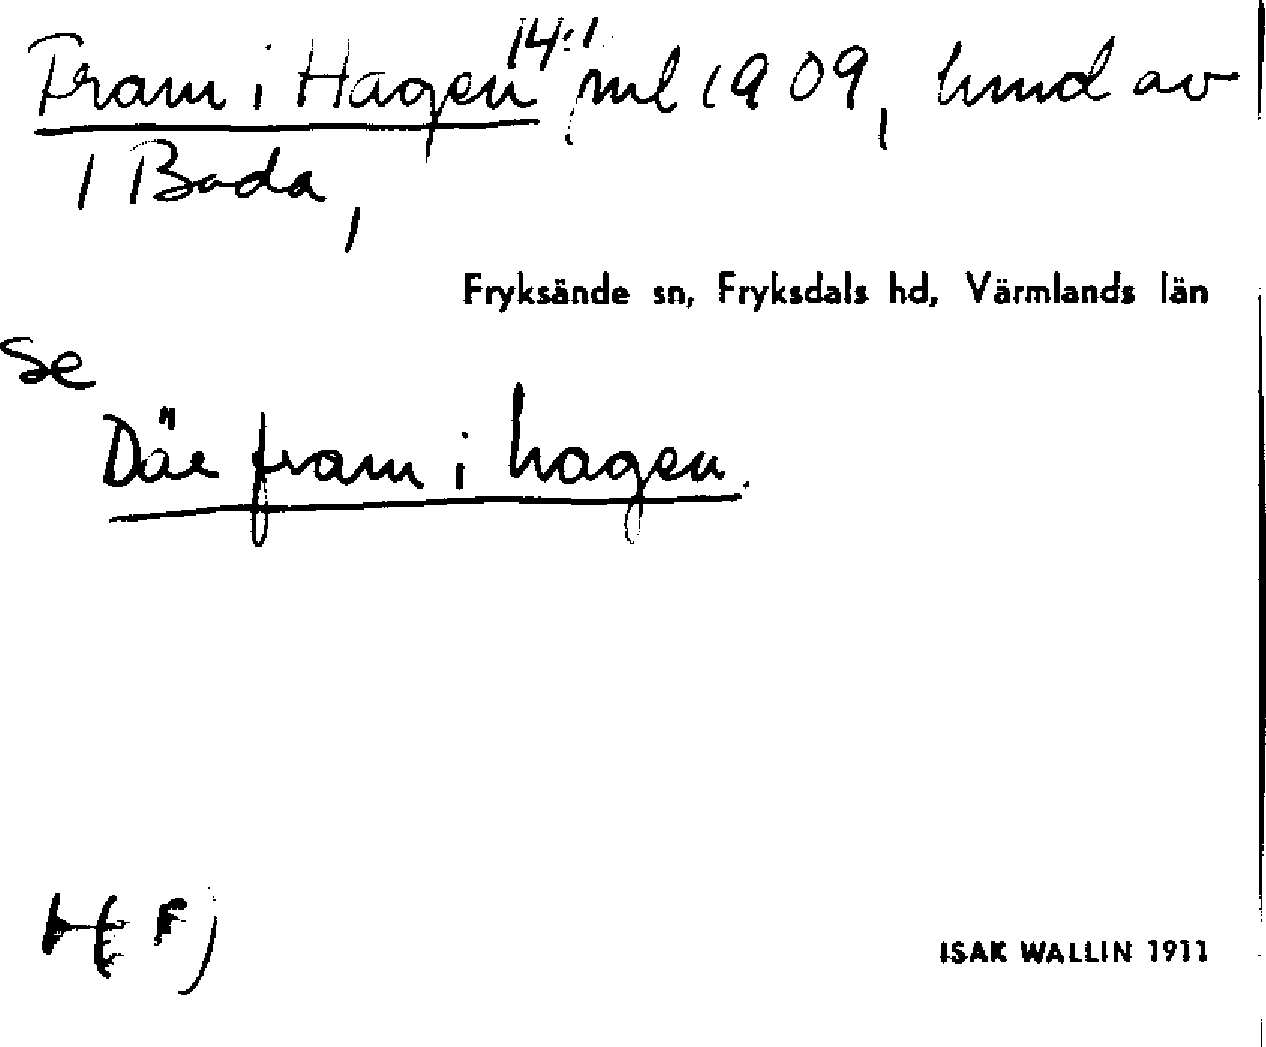 Fram i Hagen 14:1 ml 1909, hmd av
1 Bada,
Fryksände sn, Fryksdals hd, Värmlands län
Se
Där fram i hagen.
H(F)
ISAK WALLIN 1911